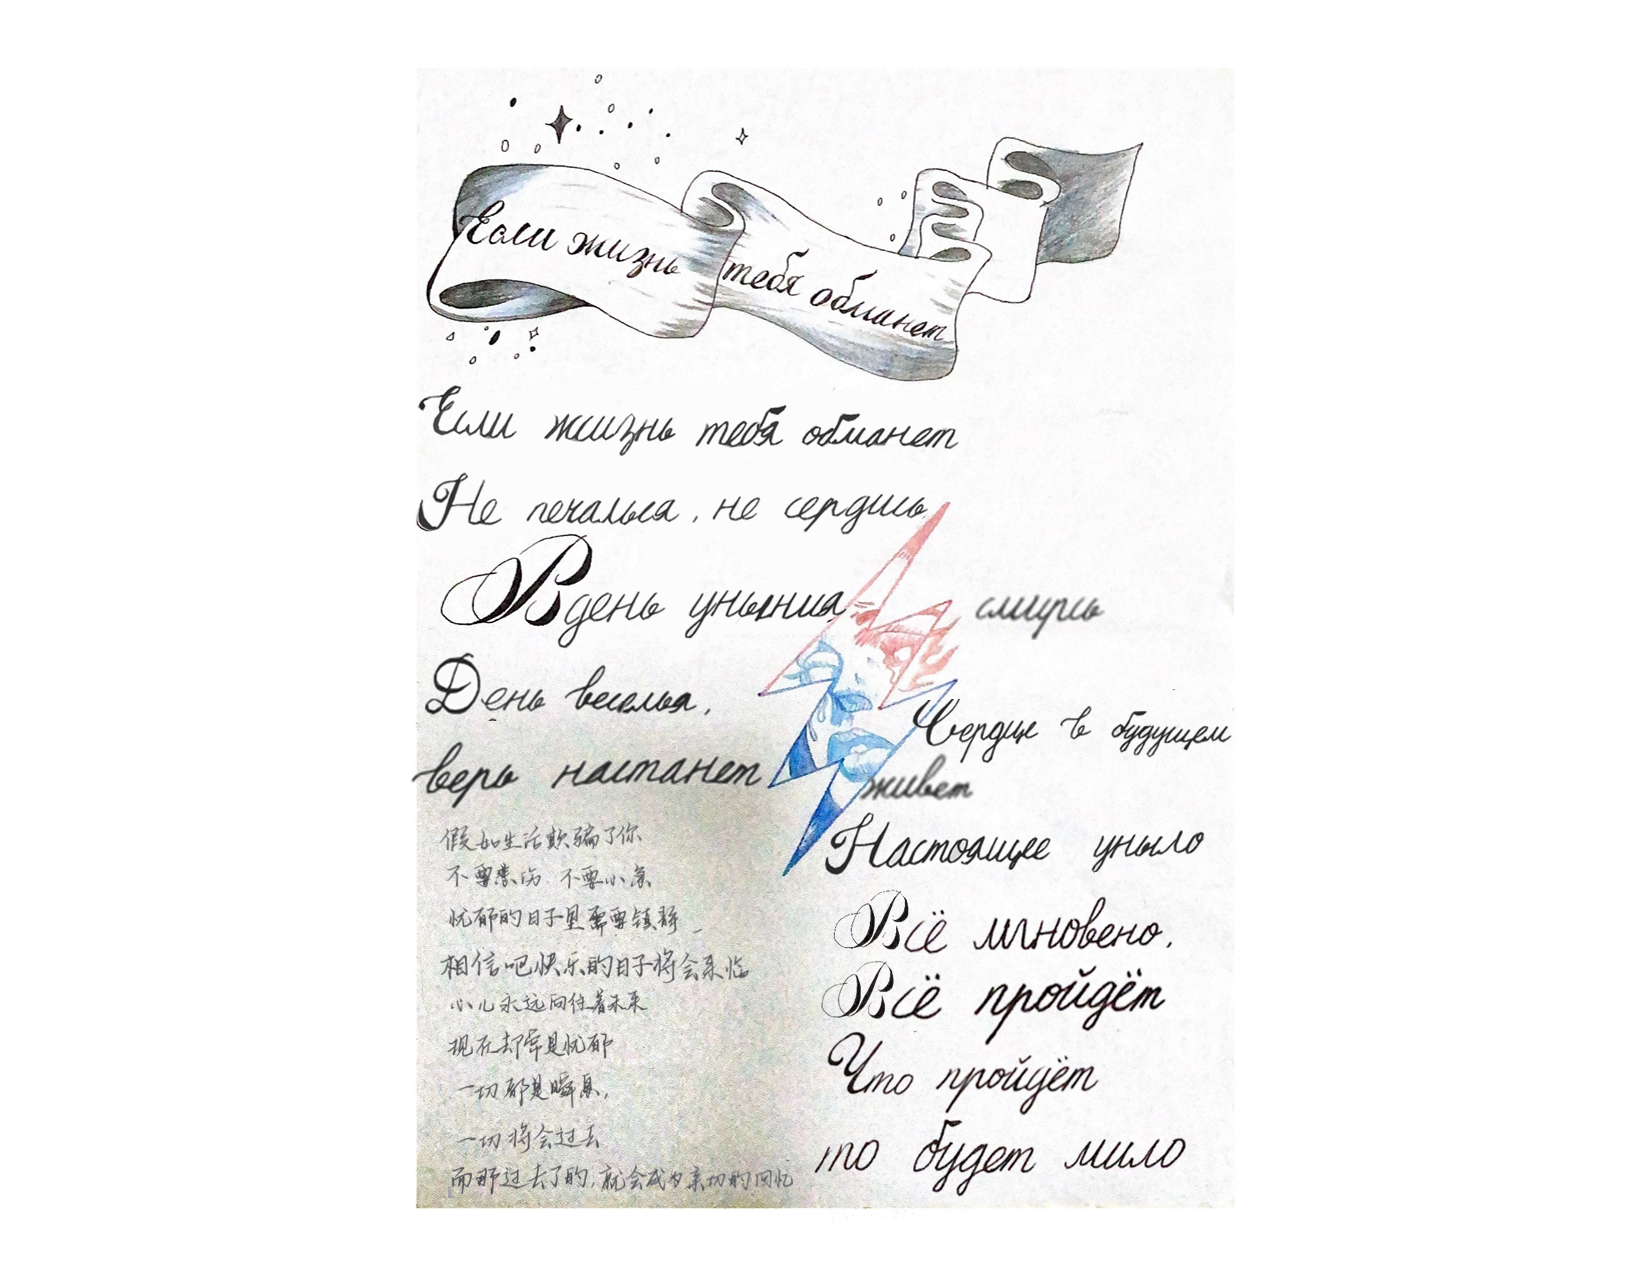 Если жизнь тебя обманет
Если жизнь тебя обманет
Не печалься, не сердись
В день уныния смирись
День веселья,
верь настанет
Сердце в будущем
живет
Настоящее уныло
Всё мгновено,
Всё пройдёт
Что пройдёт
то будет мило
假如生活欺骗了你
不要悲伤、不要心急
忧郁的日子里需要镇静,
相信吧快乐的日子将会来临
心儿永远向往着未来
现在却常是忧郁
一切都是瞬息,
一切将会过去
而那过去了的,就会成为亲切的回忆